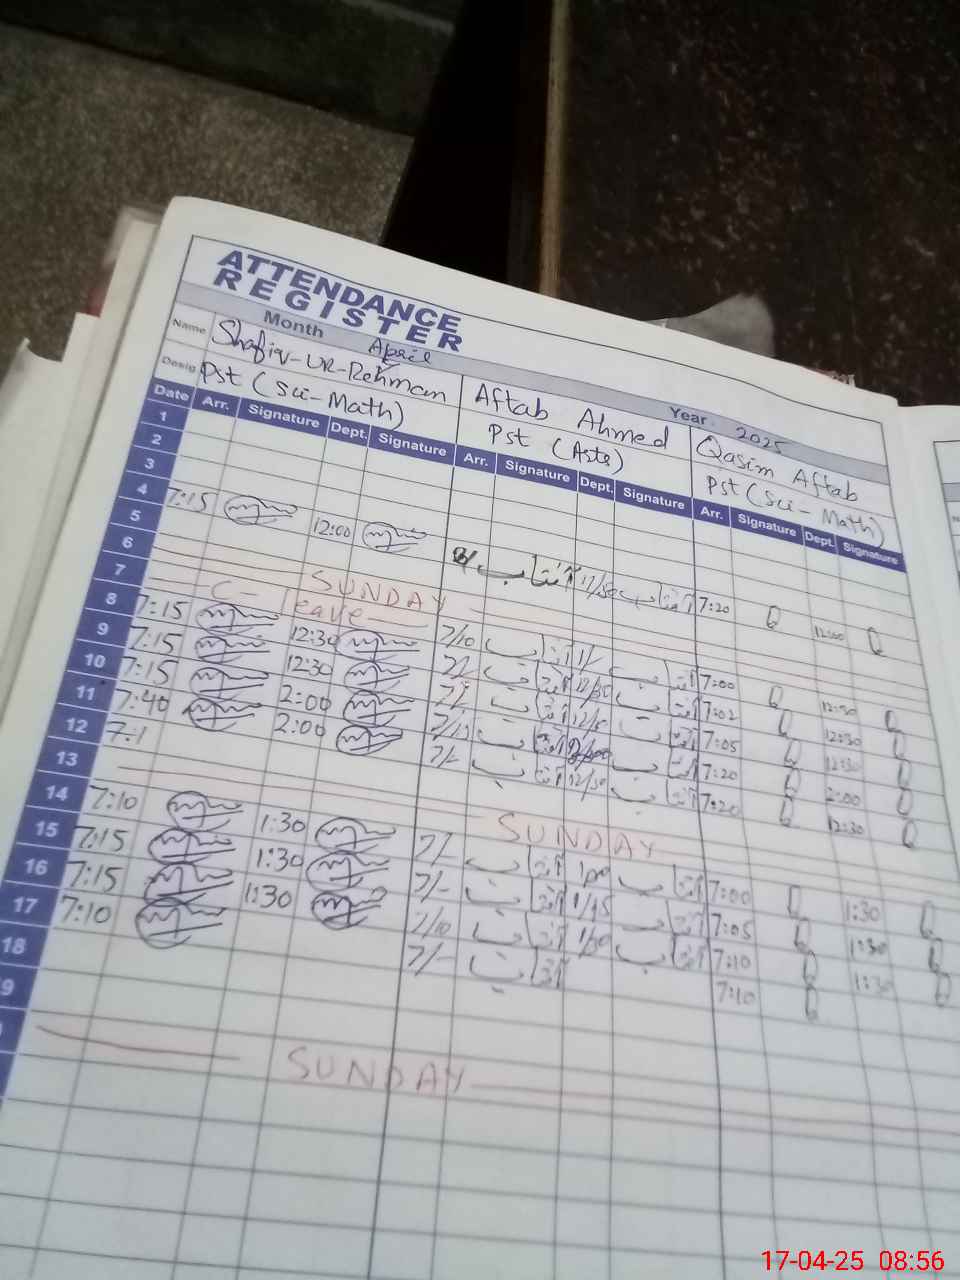 ATTENDANCE
REGISTER
Month April Year 2025
Name Shafiq-UR-Rehman Aftab Ahmed Qasim Aftab
Desig. Pst (Sci-Math) Pst (Arts) Pst (Sci-Math)
Date Arr. Signature Dept. Signature Arr. Signature Dept. Signature Arr. Signature Dept. Signature
1
2
3
4
5 7:15 12:00 آفتاب 12/50 آفتاب 7:20 12:00
6 SUNDAY
7 C-leave 7/10 آفتاب آفتاب 7:00 12:30
8 7:15 12:30 آفتاب 12/30 آفتاب 7:02 12:30
9 7:15 12:30 آفتاب آفتاب 7:05 12:30
10 7:15 2:00 آفتاب آفتاب 7:20 2:00
11 7:40 2:00 7/- آفتاب 12/30 آفتاب 7:20 12:30
12
13 SUNDAY
14 7:10 1:30 7/- آفتاب آفتاب 7:00 1:30
15 7:15 1:30 7/- آفتاب 1/45 آفتاب 7:05 1:30
16 7:15 1:30 7/10 آفتاب 1/30 آفتاب 7:10 1:30
17 7:10 7/- آفتاب 7:10
18
9
SUNDAY
17-04-25 08:56